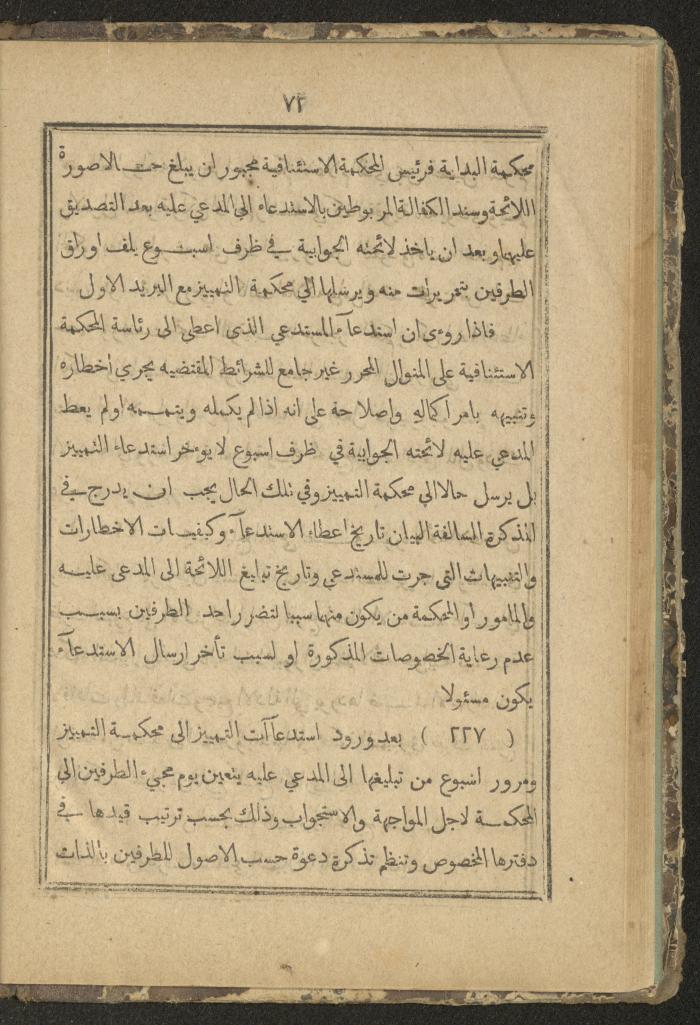 ٧٣
محكمة البداية فرئيس المحكمة الاستئنافية مجبور ان يبلغ حسب الاصورة
اللائحة وسند الكفالة المربوطين بالاستدعاء الى المدعي عليه بعد التصديق
عليها وبعد ان ياخذ لائحته الجوابية في ظرف اسبوع يلف اوراق
الطرفين بتحريرات منه ويرسلها الي محكمة التمييز مع البريد الاول
فاذا روءى ان استدعآء المستدعي الذى اعطى الى رئاسة المحكمة
الاستئنافية على المنوال المحرر غير جامع للشرائط المقتضيه يجري اخطاره
وتنبيهه بامر اكماله واصلاحة على انه اذا لم يكمله ويتممه او لم يعط
المدعي عليه لائحته الجوابية في ظرف اسبوع لا يوءخر استدعاء التمييز
بل يرسل حالا الي محكمة التمييز وفي تلك الحال يجب ان يدرج في
المذكرة السالفة البيان تاريخ اعطاء الاستدعآء وكيفيات الاخطارات
والتنبيهات التى جرت للمستدعي وتاريخ تبليغ اللائحة الى المدعى عليه
والمامور او المحكمة من يكون منها سببا لتضرر احد الطرفين بسبب
عدم رعاية الخصوصات المذكورة او لسبب تأخر ارسال الاستدعآء
يكون مسئولا
( ٢٢٧ ) بعد ورود استدعاآت التمييز الى محكمة التمييز
ومرور اسبوع من تبليغها الى المدعي عليه يتعين يوم مجيء الطرفين الي
المحكمة لاجل المواجهة والاستجواب وذالك بحسب ترتيب قيدها في
دفترها المخصوص وتنظم تذكرة دعوة حسب الاصول للطرفين بالذات